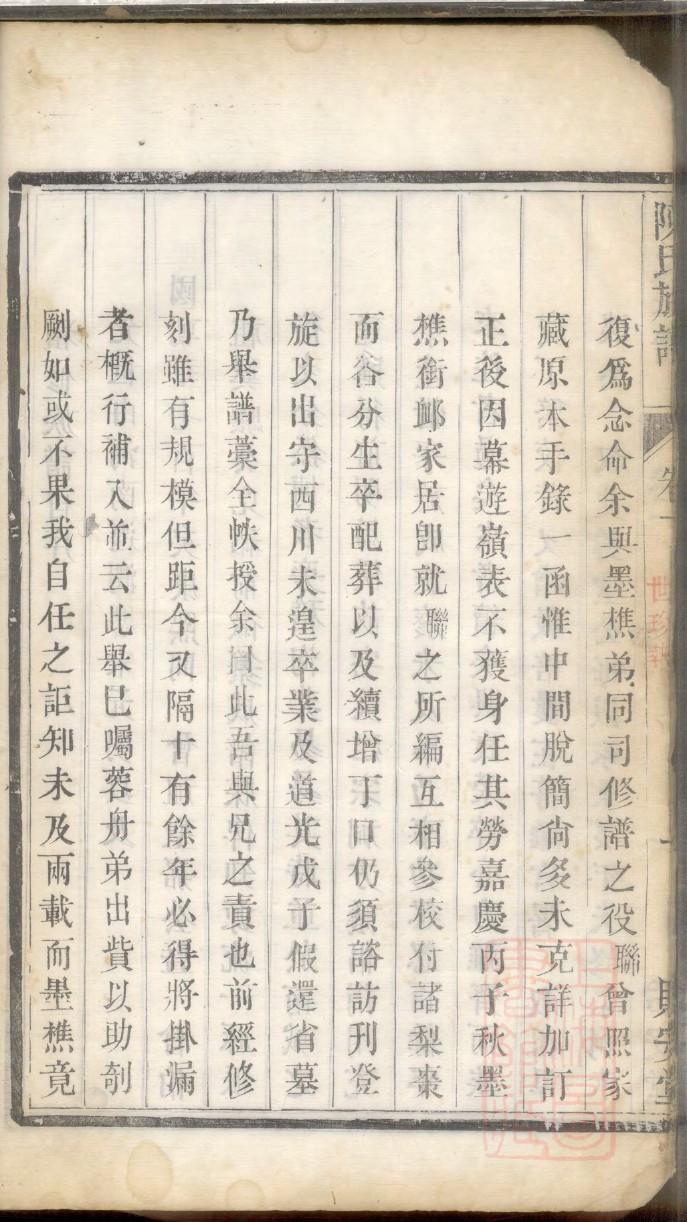 陳氏族譜 卷一 一 貽安堂
復爲念命余與墨樵弟同司修譜之役聯曾照家
藏原本手錄一函惟中間脫簡尙多未克詳加訂
正後因幕遊嶺表不獲身任其勞嘉慶丙子秋墨
樵銜䘏家居卽就聯之所編互相參校付諸梨棗
而各分生卒配葬以及續增丁口仍須諮訪刊登
旋以出守西川未遑卒業及道光戊子假還省墓
乃舉譜藁全帙授余曰此吾與兄之責也前經修
刻雖有規模但距今又隔十有餘年必得將掛漏
者槪行補入並云此舉已囑蓉舟弟出貲以助剞
劂如或不果我自任之詎知未及兩載而墨樵竟